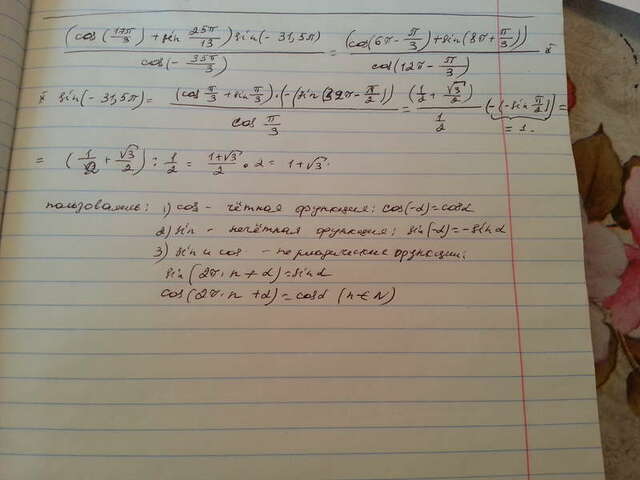 (cos(17π/3) + sin 25π/13) sin(- 31,5π) / cos(- 35π/3) = (cos(6π - π/3) + sin(8π + π/3)) / cos(12π - π/3) ×
× sin(- 31,5π) = (cos π/3 + sin π/3) · (-(sin(32π - π/2)) / cos π/3 = (1/2 + √3/2) / 1/2 (-(-sin π/2)) =
= 1.
= (1/2 + √3/2) : 1/2 = 1+√3/2 · 2 = 1+√3.
пользовались: 1) cos - чётная функция: cos(-α)=cosα
2) sin - нечётная функция: sin(-α)=-sinα
3) sin и cos - периодические функции:
sin(2π·n + α)=sinα
cos(2π·n + α)=cosα (n∈N)